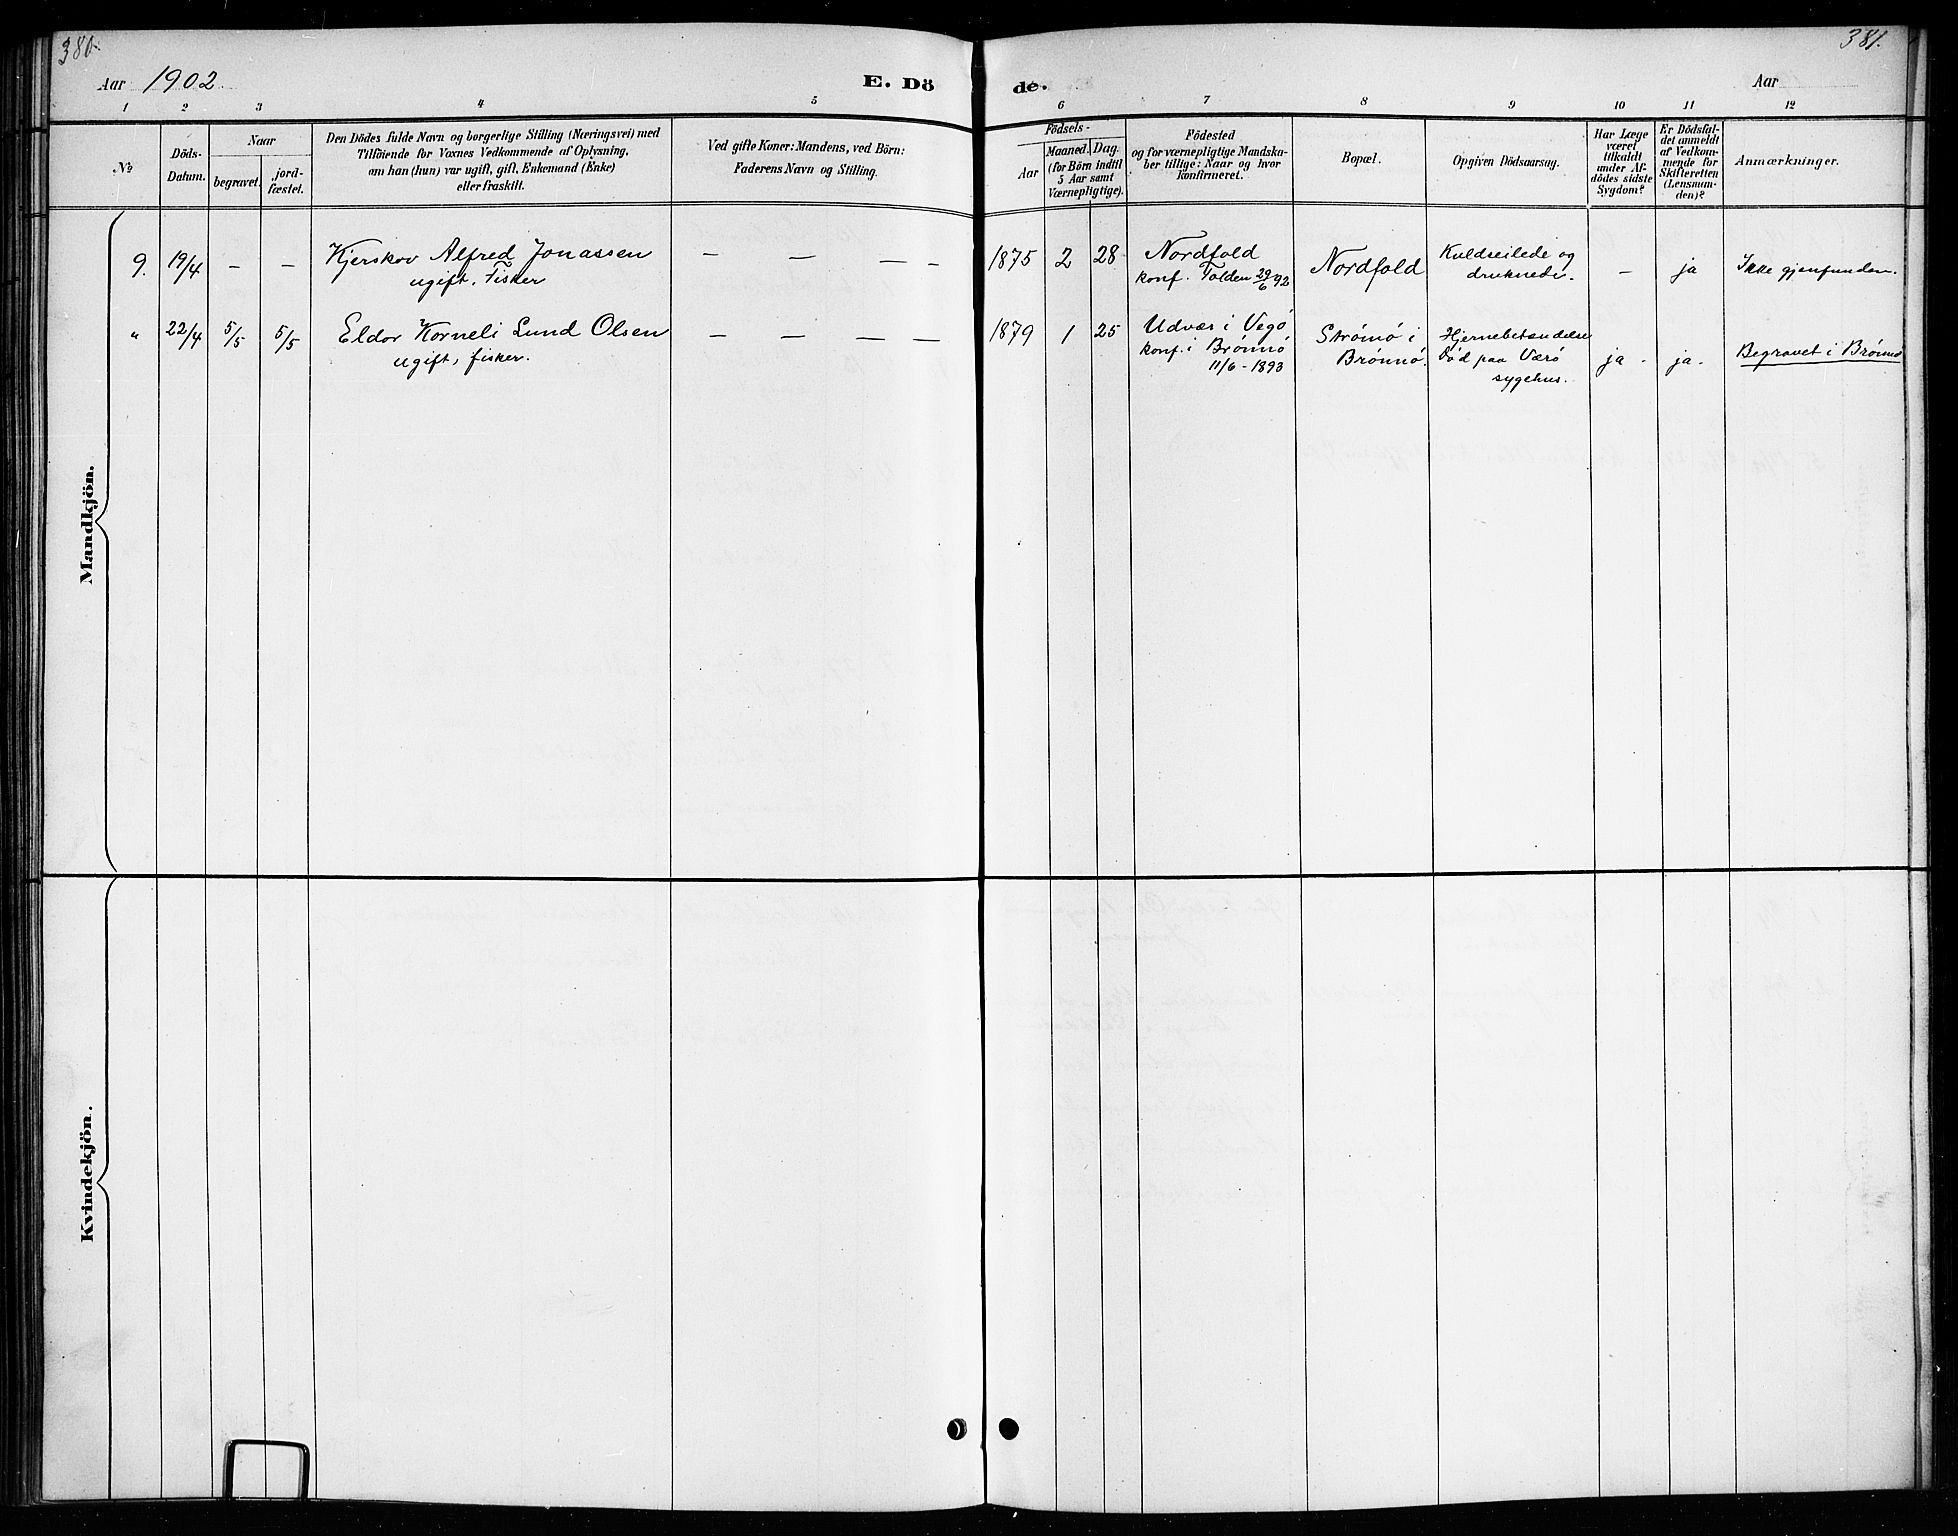 380.
381.
Aar 1902
E. Dö
de.
Aar
1 2 3 4 5 6 7 8 9 10 11 12
№
Döds-
Datum.
Naar
begravet.
jord-
fæstet.
Den Dödes fulde Navn og borgerlige Stilling (Næringsvei) med
Tilföiende for Voxnes Vedkommende af Oplysning,
om han (hun) var ugift, gift, Enkemand (Enke)
eller fraskilt.
Ved gifte Koner: Mandens, ved Börn:
Faderens Navn og Stilling.
Födsels-
Aar
Maaned.
Dag.
(for Börn indtil
5 Aar samt
Værnepligtige).
Födested
og for værnepligtige Mandska-
ber tillige: Naar og hvor
konfirmeret.
Bopæl.
Opgiven Dödsaarsag.
Har Læge
været
tilkaldt
under Af-
dödes sidste
Sygdom?
Er Dödsfal-
det anmeldt
af Vedkom-
mende for
Skifteretten
(Lensman-
den)?
Anmærkninger.
Mandkjön.
9. 19/4 — — Kjerskov Alfred Jonassen — — — — 1875 2 28 Nordfold Nordfold Kuldseilede og — ja Ikke gjenfunden.
ugift. Fisker konf. Folden 29/6 92 druknede.
" 22/4 5/5 5/5 Eldor Korneli Lund Olsen — — — — 1879 1 25 Udvær i Vegø Strømø i Hjernebetændelse
ugift, fisker. konf. i Brønnø Brønnø. Død paa Værø ja - ja. Begravet i Brønnø
11/6 - 1893 sygehus.
Kvindekjön.